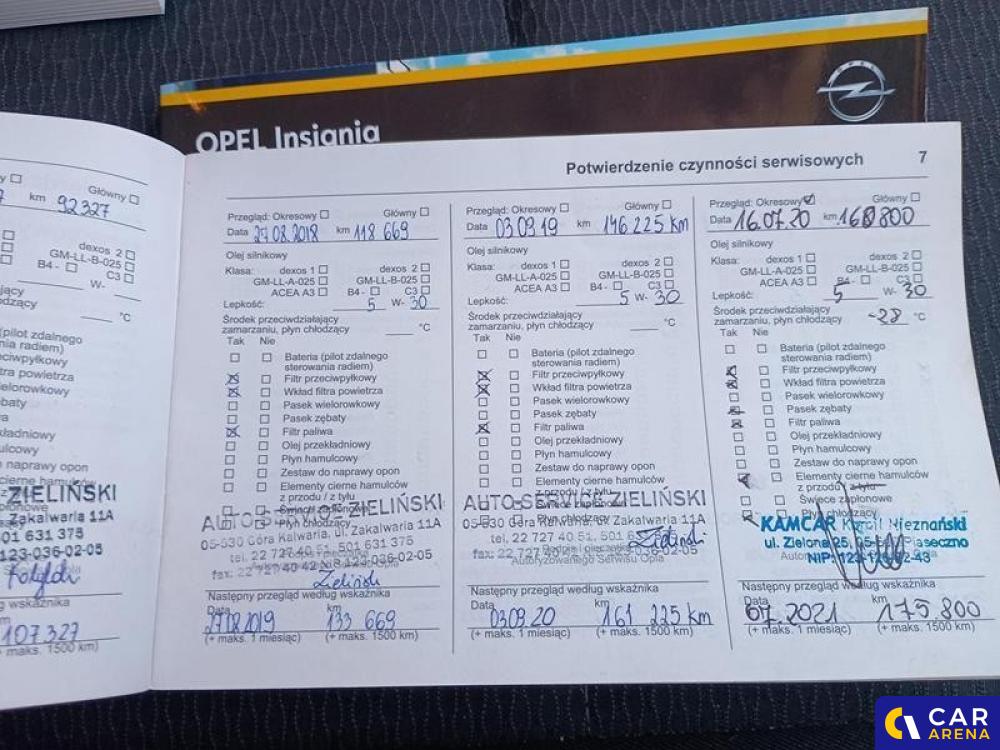 OPEL Insignia
OPEL
Potwierdzenie czynności serwisowych 7
Główny
km 92327
dexos 2
GM-LL-B-025
B4 - C3
W-
°C
(pilot zdalnego
nia radiem)
ciwpyłkowy
tra powietrza
ielorowkowy
ębaty
a
kładniowy
mulcowy
naprawy opon
cierne hamulców
ZIELIŃSKI
Zakalwaria 11A
01 631 375
123-036-02-05
g wskaźnika
107.327
maks. 1500 km)
Przegląd: Okresowy Główny
Data 27.08.2018 km 118 669
Olej silnikowy
Klasa: dexos 1 dexos 2
GM-LL-A-025 GM-LL-B-025
ACEA A3 B4 - C3
Lepkość: 5 W- 30
Środek przeciwdziałający
zamarzaniu, płyn chłodzący °C
Tak Nie
Bateria (pilot zdalnego
sterowania radiem)
Filtr przeciwpyłkowy
Wkład filtra powietrza
Pasek wielorowkowy
Pasek zębaty
Filtr paliwa
Olej przekładniowy
Płyn hamulcowy
Zestaw do naprawy opon
Elementy cierne hamulców
z przodu / z tyłu
Świece zapłonowe
Płyn chłodzący
AUTO-SERVICE ZIELIŃSKI
05-530 Góra Kalwaria, ul. Zakalwaria 11A
tel. 22 727 40 51, 501 631 375
fax: 22 727 40 42 NIP 123-036-02-05
Zieliński
Następny przegląd według wskaźnika
Data km
27.08.2019 133 669
(+ maks. 1 miesiąc) (+ maks. 1500 km)
Przegląd: Okresowy Główny
Data 03.09.19 km 146 225 km
Olej silnikowy
Klasa: dexos 1 dexos 2
GM-LL-A-025 GM-LL-B-025
ACEA A3 B4 - C3
Lepkość: 5 W- 30
Środek przeciwdziałający
zamarzaniu, płyn chłodzący °C
Tak Nie
Bateria (pilot zdalnego
sterowania radiem)
Filtr przeciwpyłkowy
Wkład filtra powietrza
Pasek wielorowkowy
Pasek zębaty
Filtr paliwa
Olej przekładniowy
Płyn hamulcowy
Zestaw do naprawy opon
Elementy cierne hamulców
z przodu / z tyłu
Świece zapłonowe
Płyn chłodzący
AUTO-SERVICE ZIELIŃSKI
05-530 Góra Kalwaria, ul. Zakalwaria 11A
tel. 22 727 40 51, 501 6
fax: 22 727 036-02-05
Zieliński
Autoryzowanego Serwisu Opla
Następny przegląd według wskaźnika
Data km
03.09.20 161 225 km
(+ maks. 1 miesiąc) (+ maks. 1500 km)
Przegląd: Okresowy Główny
Data 16.07.20 km 160 800
Olej silnikowy
Klasa: dexos 1 dexos 2
GM-LL-A-025 GM-LL-B-025
ACEA A3 B4 - C3
Lepkość: 5 W- 30
Środek przeciwdziałający
zamarzaniu, płyn chłodzący -28 °C
Tak Nie
Bateria (pilot zdalnego
sterowania radiem)
Filtr przeciwpyłkowy
Wkład filtra powietrza
Pasek wielorowkowy
Pasek zębaty
Filtr paliwa
Olej przekładniowy
Płyn hamulcowy
Zestaw do naprawy opon
Elementy cierne hamulców
z przodu / z tyłu
Świece zapłonowe
Płyn chłodzący
KAMCAR Kamil Nieznański
ul. Zielona 25, 05-500 Piaseczno
Następny przegląd według wskaźnika
Data km
07.2021 175 800
(+ maks. 1 miesiąc) (+ maks. 1500 km)
CAR
ARENA